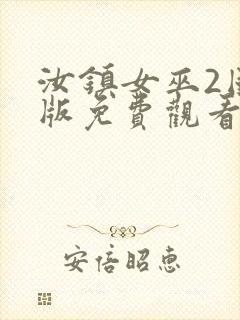 汝鎮女巫2
版免費觀看
安倍昭惠